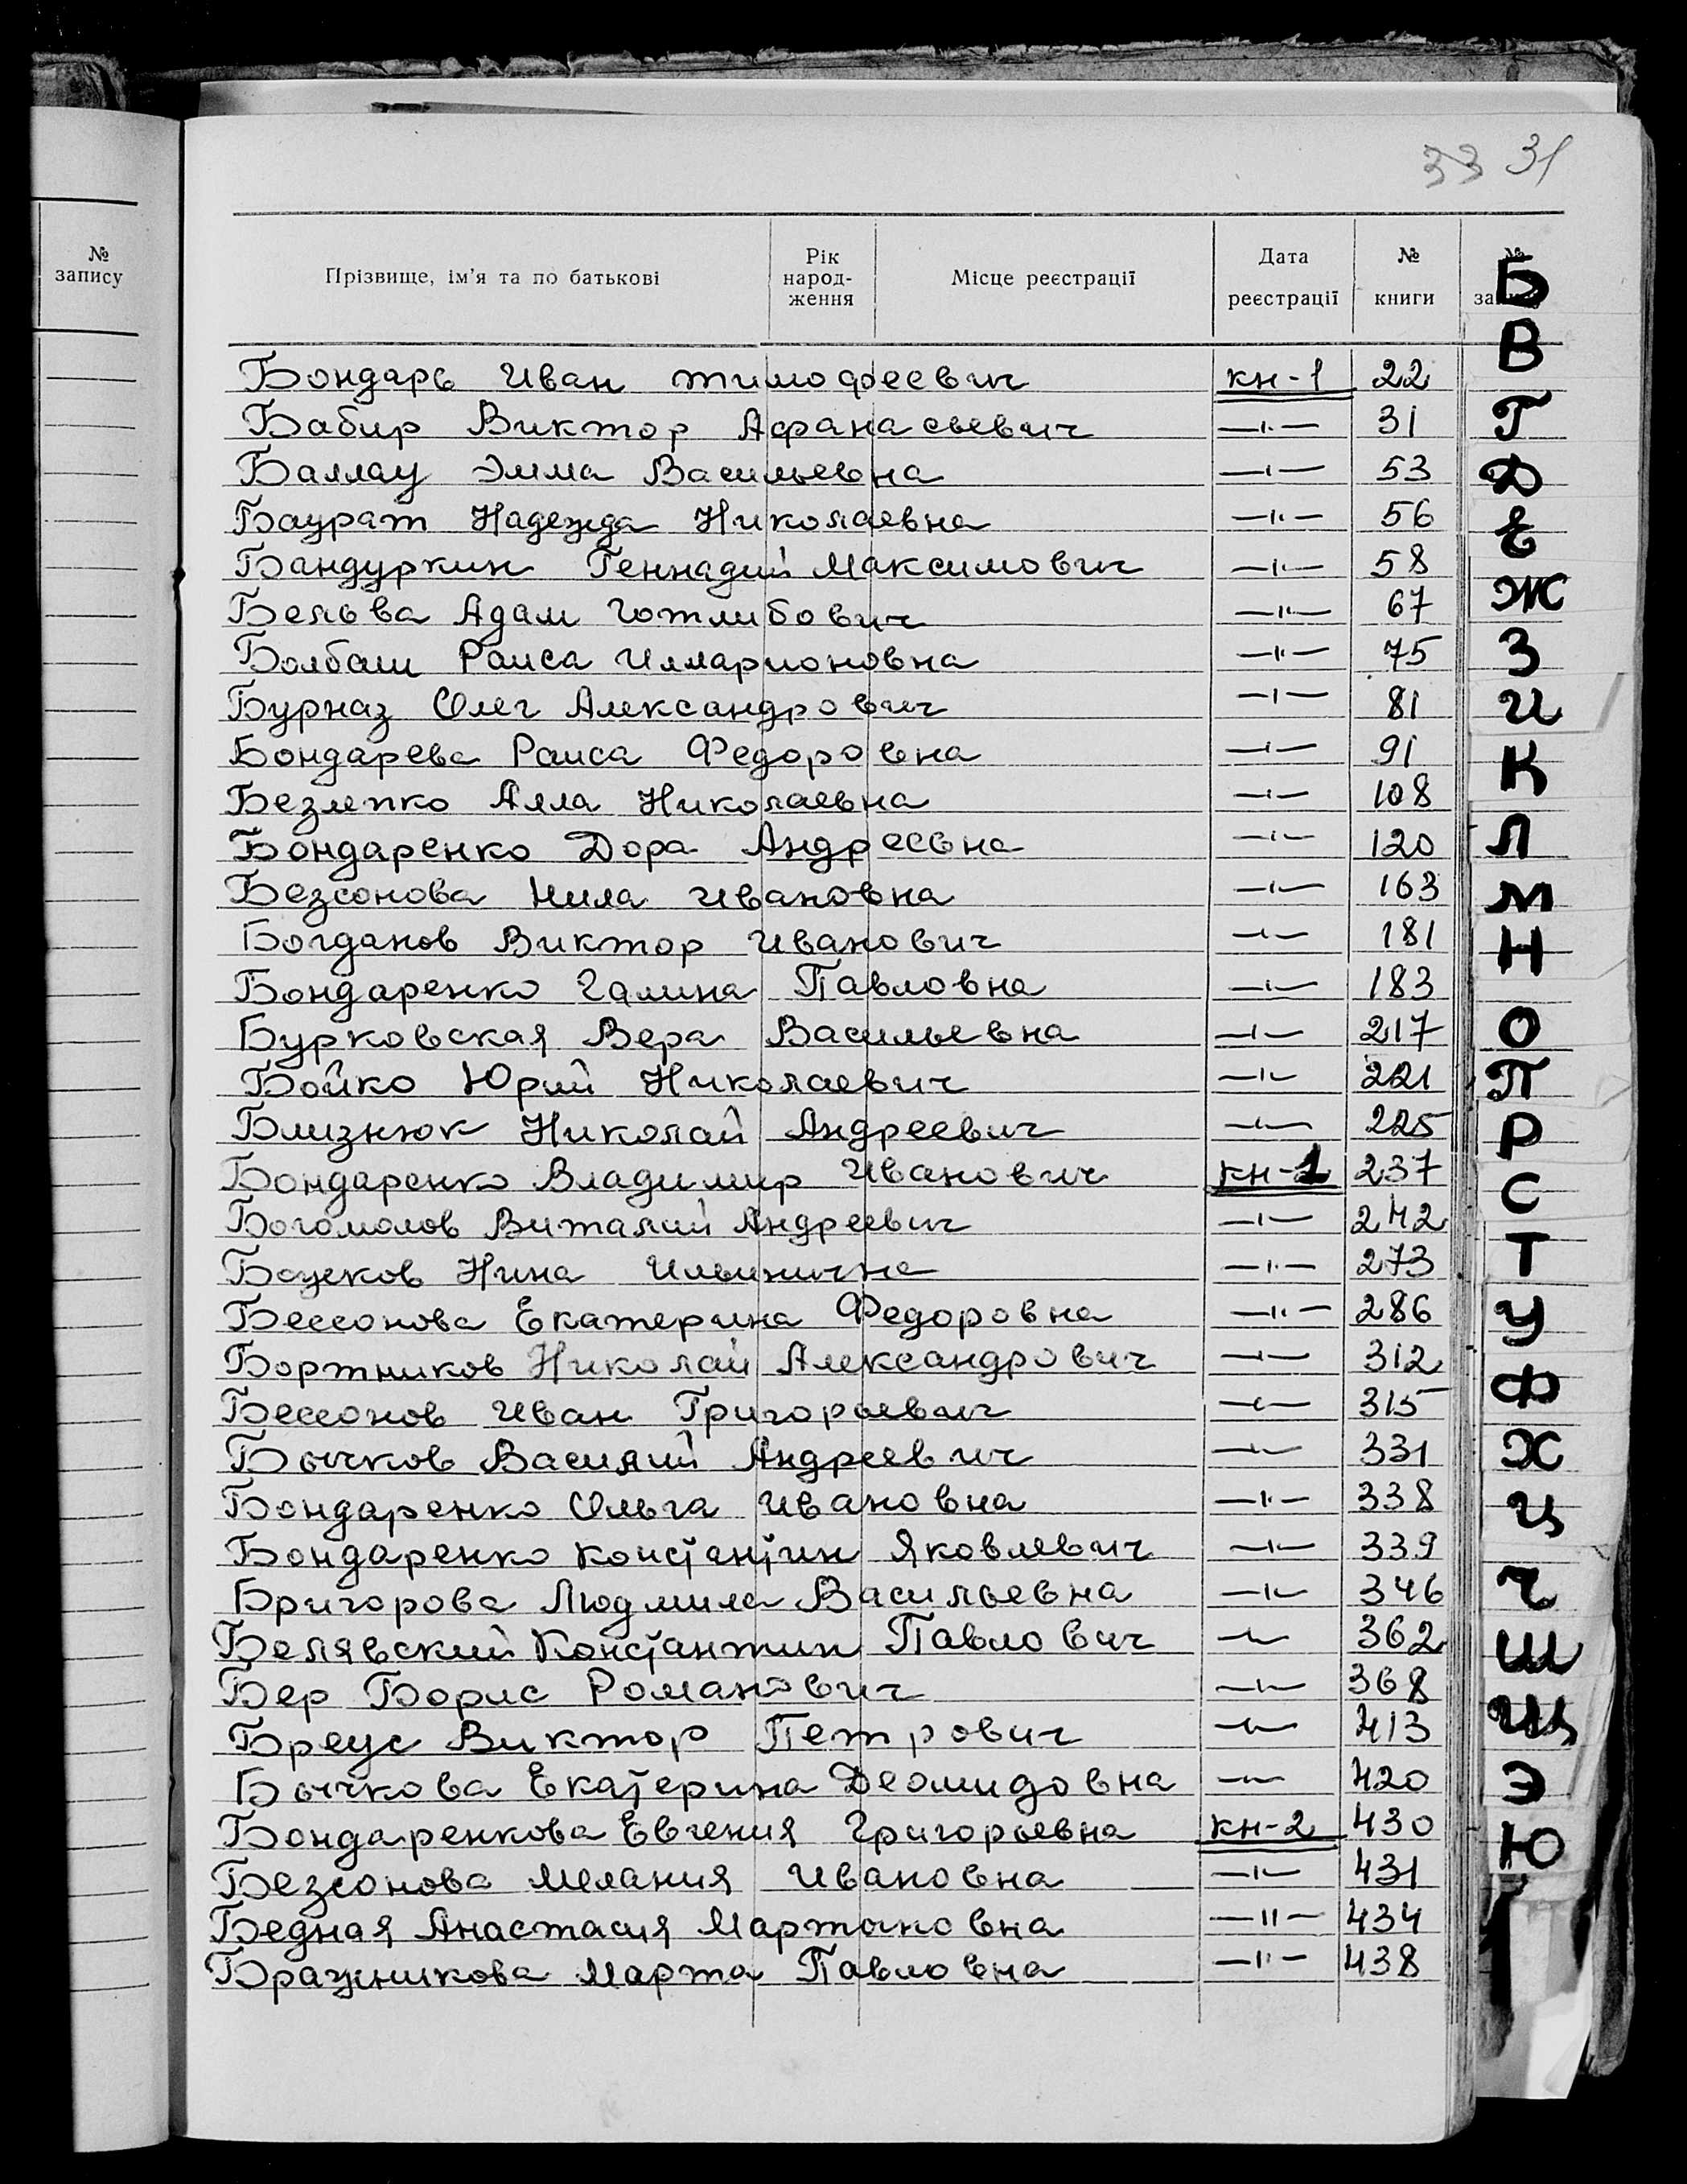 33 31
№ запису
Прізвище, ім'я та по батькові Рік народження Місце реєстрації Дата реєстрації № книги №
Бондарь Иван Тимофеевич кн-1 22
Бабир Виктор Афанасьевич —"— 31
Баллау Эмма Васильевна —"— 53
Баурат Надежда Николаевна —"— 56
Бандуркин Геннадий Максимович —"— 58
Бельва Адам Готлибович —"— 67
Болбаш Раиса Илларионовна —"— 75
Бурназ Олег Александрович —"— 81
Бондарева Раиса Федоровна —"— 91
Безлепко Алла Николаевна —"— 108
Бондаренко Дора Андреевна —"— 120
Безсонова Нила Ивановна —"— 163
Богданов Виктор Иванович —"— 181
Бондаренко Галина Павловна —"— 183
Бурковская Вера Васильевна —"— 217
Бойко Юрий Николаевич —"— 221
Близнюк Николай Андреевич —"— 225
Бондаренко Владимир Иванович кн-1 237
Богомолов Виталий Андреевич —"— 242
Нина Ильинична —"— 273
Бессонова Екатерина Федоровна —"— 286
Бортников Николай Александрович —"— 312
Бессонов Иван Григорьевич —"— 315
Бычков Василий Андреевич —"— 331
Бондаренко Ольга Ивановна —"— 338
Бондаренко Константин Яковлевич —"— 339
Бригорова Людмила Васильевна —"— 346
Белявский Константин Павлович —"— 362
Бер Борис Романович —"— 368
Бреус Виктор Петрович —"— 413
Бычкова Екатерина Деомидовна —"— 420
Бондаренкова Евгения Григорьевна кн-2 430
Безсонова Мелания Ивановна —"— 431
Бедная Анастасия Мартыновна —"— 434
Бражникова Марта Павловна —"— 438
Б
В
Г
Д
Е
Ж
З
И
К
Л
М
Н
О
П
Р
С
Т
У
Ф
Х
Ц
Ч
Ш
Щ
Э
Ю